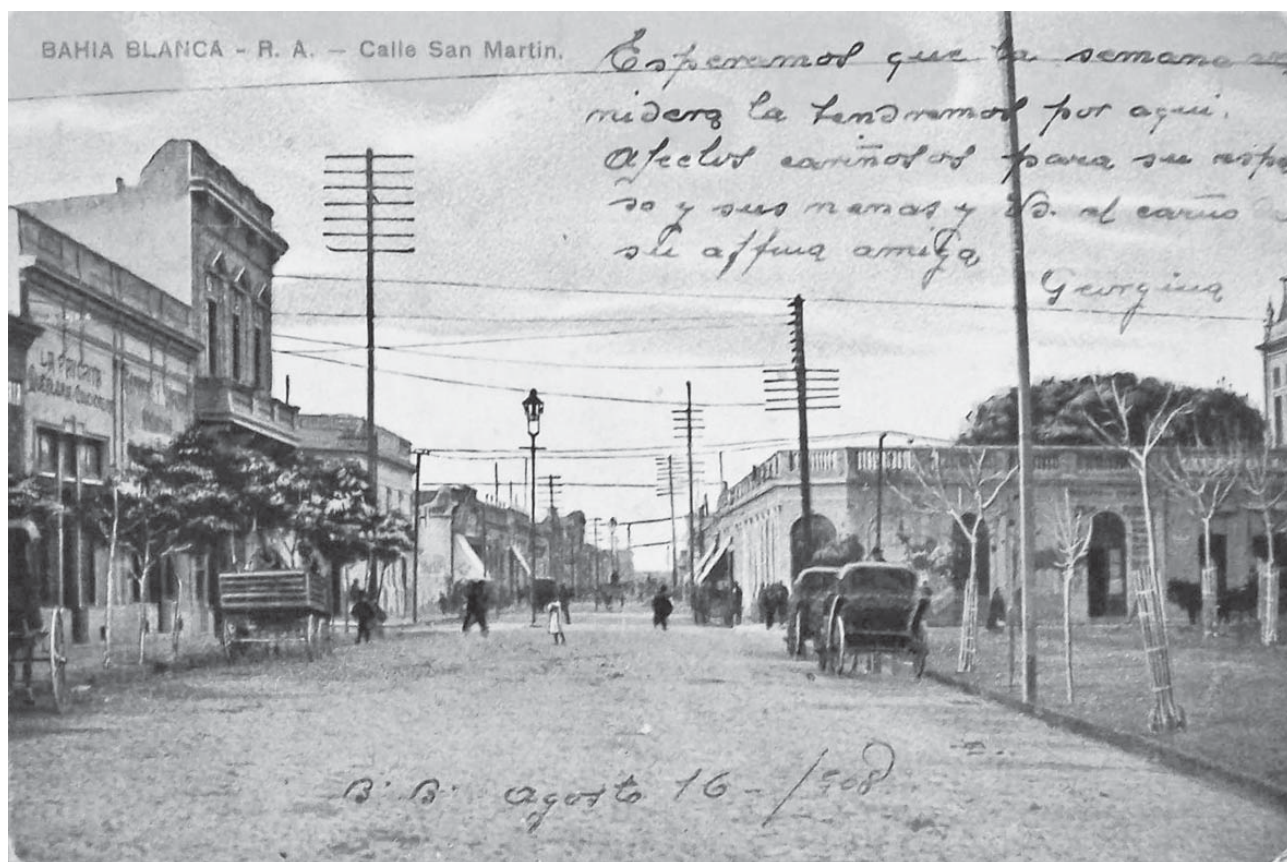 BAHIA BLANCA - R. A. — Calle San Martin.
Esperamos que la semana ve
nidera la tendremos por aqui.
Afectos cariñosos para su espo
so y sus nenas y Vd. el cariño
su affma amiga
Georgina
LA
B. B. Agosto 16 - /908